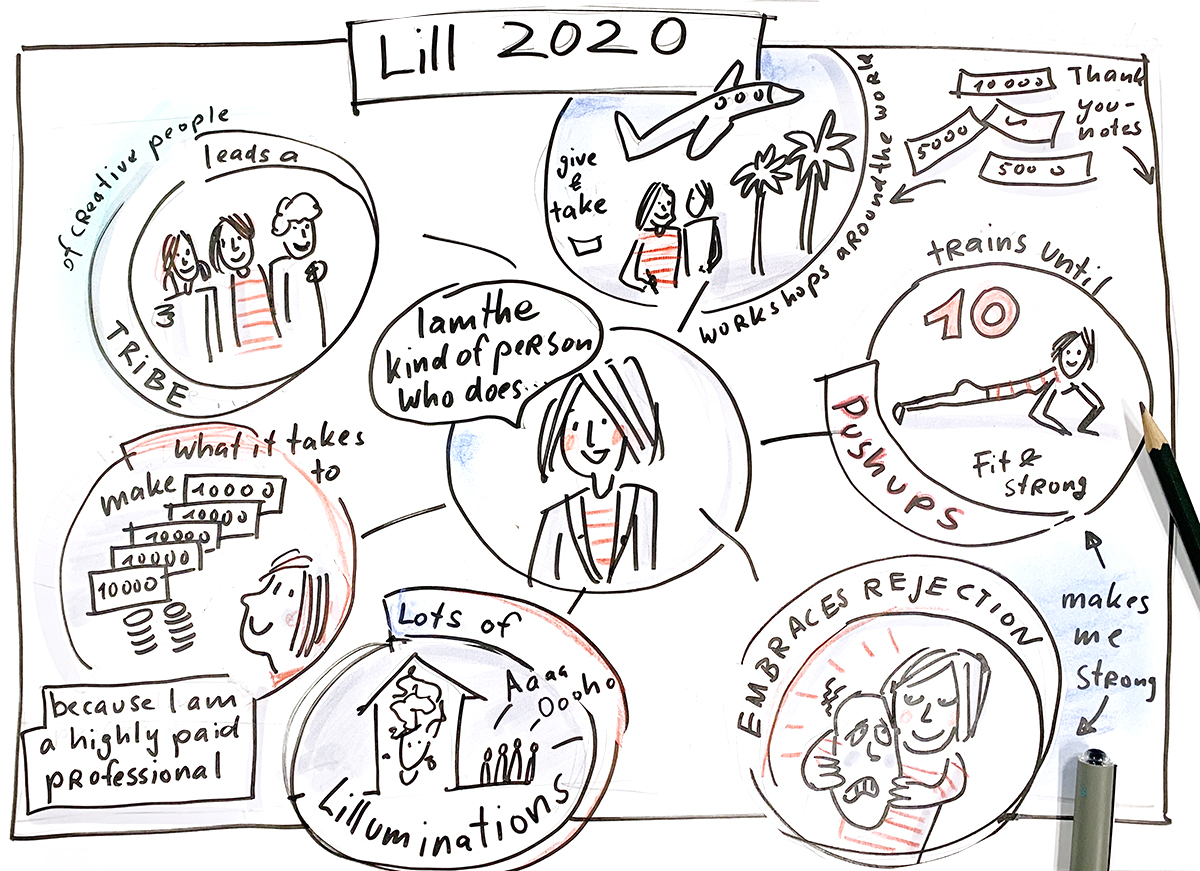 Lill 2020
of creative people
leads a
TRIBE
give
&
take
workshops around the world
10 000
5000
5000
Thank
you-
notes
I am the
kind of person
who does...
trains until
10
Pushups
Fit &
strong
What it takes
to
make
10000
10000
10000
10000
10000
because I am
a highly paid
professional
Lots of
Aaaa
Oooho
Lilluminations
EMBRACES REJECTION
makes
me
strong